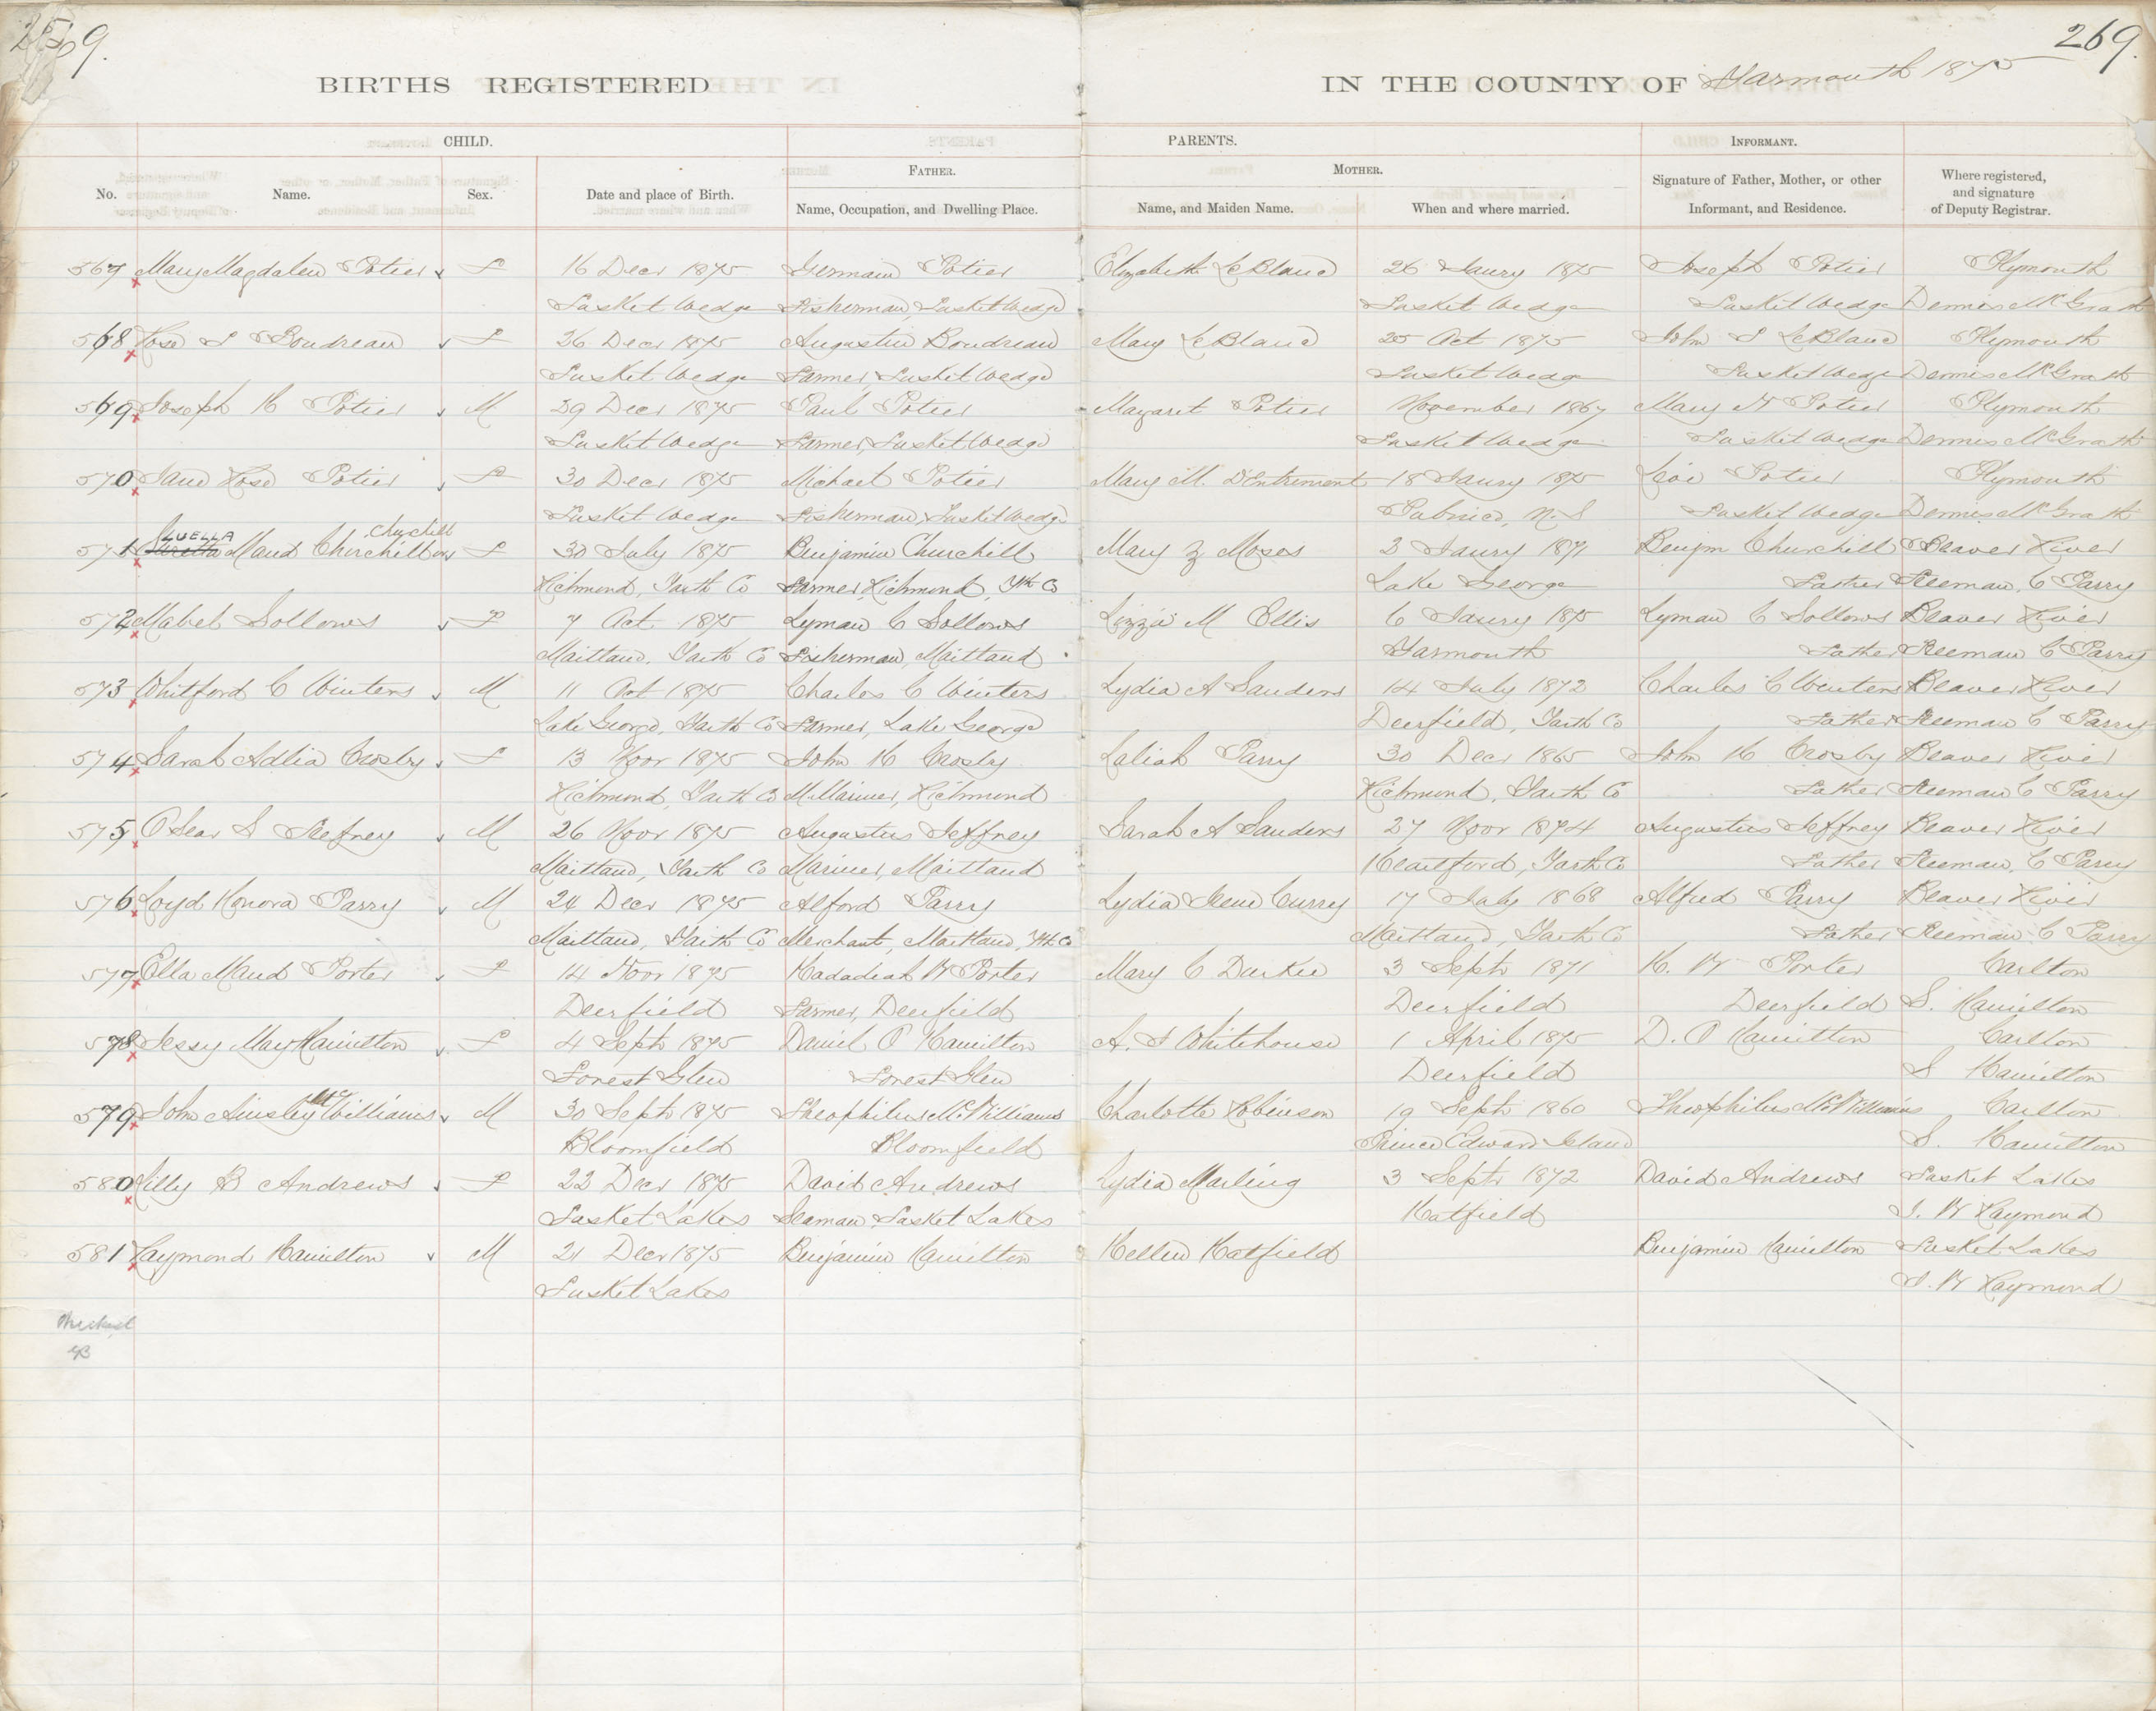 269.
269.
BIRTHS REGISTERED IN THE COUNTY OF Yarmouth 1875
CHILD. PARENTS. INFORMANT.
No. Name. Sex. Date and place of Birth. FATHER. Name, Occupation, and Dwelling Place. MOTHER. Name, and Maiden Name. When and where married. Signature of Father, Mother, or other Informant, and Residence. Where registered, and signature of Deputy Registrar.
567 Mary Magdalen Potier F 16 Decr 1875 Germain Potier Elizabeth LeBlanc 26 Jaury 1875 Joseph Potier Plymouth
Tusket Wedge Fisherman, Tusket Wedge Tusket Wedge Tusket Wedge Dennis McGrath
568 Rose Boudreau F 26 Decr 1875 Augustin Boudreau Mary LeBlanc 25 Oct 1875 John LeBlanc Plymouth
Tusket Wedge Farmer, Tusket Wedge Tusket Wedge Tusket Wedge Dennis McGrath
569 Joseph H Potier M 29 Decr 1875 Paul Potier Magaret Potier November 1867 Mary Potier Plymouth
Tusket Wedge Farmer, Tusket Wedge Tusket Wedge Tusket Wedge Dennis McGrath
570 Jane Rose Potier F 30 Decr 1875 Michael Potier Mary M. D'Entremont 18 Jaury 1875 Levi Potier Plymouth
Tusket Wedge Fisherman, Tusket Wedge Pubnico, N.S Tusket Wedge Dennis McGrath
LUELLA Churchill
571 Maud Churchill F 30 July 1875 Benjamin Churchill Mary Z Moses 3 Jaury 1871 Benjm Churchill Beaver River
Richmond, Yarth Co Farmer, Richmond, Yth Co Lake George Father Freeman C Parry
572 Mabel Sollows F 7 Oct 1875 Lyman C Sollows Lizzie M Ellis 6 Jaury 1875 Lyman C Sollows Beaver River
Maitland, Yarth Co Fisherman, Maitland Yarmouth Father Freeman C Parry
573 Whitford C Winters M 11 Oct 1875 Charles C Winters Lydia A Sanders 14 July 1872 Charles C Winters Beaver River
Lake George, Yarth Co Farmer, Lake George Deerfield, Yarth Co Father Freeman C Parry
574 Sarah Adlia Crosby F 13 Novr 1875 John H Crosby Kaliah Parry 30 Decr 1865 John H Crosby Beaver River
Richmond, Yarth Co M. Mariner, Richmond Richmond, Yarth Co Father Freeman C Parry
575 Oscar S Jeffrey M 26 Novr 1875 Augustus Jeffrey Sarah A Sanders 27 Novr 1874 Augustus Jeffrey Beaver River
Maitland, Yarth Co Mariner, Maitland Heartford, Yarth Co Father Freeman C Parry
576 Loyd Honora Parry M 24 Decr 1875 Alford Parry Lydia Irene Curry 17 July 1868 Alfred Parry Beaver River
Maitland, Yarth Co Merchant, Maitland, Yth Co Maitland, Yarth Co Father Freeman C Parry
577 Ella Maud Porter F 14 Novr 1875 Hadadiah W Porter Mary C Durkee 3 Septr 1871 H. W Porter Carlton
Deerfield Farmer, Deerfield Deerfield Deerfield S. Hamilton
578 Jessy May Hamilton F 4 Septr 1875 Daniel O Hamilton A. J Whitehouse 1 April 1875 D. O Hamilton Carlton
Forest Glen Forest Glen Deerfield S Hamilton
579 John Ainsley McWilliams M 30 Septr 1875 Theophilus McWilliams Charlotte Robinson 19 Septr 1860 Theophilus McWilliams Carlton
Bloomfield Bloomfield Prince Edward Island S. Hamilton
580 Lilly B Andrews F 22 Decr 1875 David Andrews Lydia Marling 3 Septr 1872 David Andrews Tusket Lakes
Tusket Lakes Seaman, Tusket Lakes Hatfield J. W Raymond
581 Raymond Hamilton M 21 Decr 1875 Benjamin Hamilton Hellen Hatfield Benjamin Hamilton Tusket Lakes
Tusket Lakes J. W Raymond